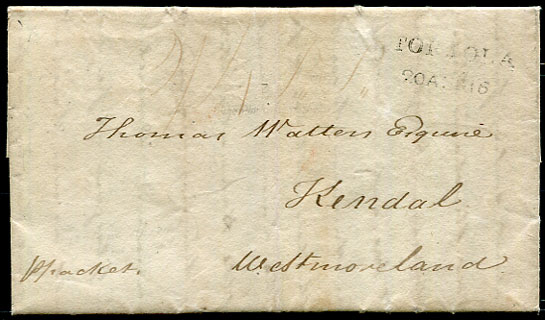 TORTOLA
Thomas Watters Esquire
Kendal
Westmoreland
pPacket.